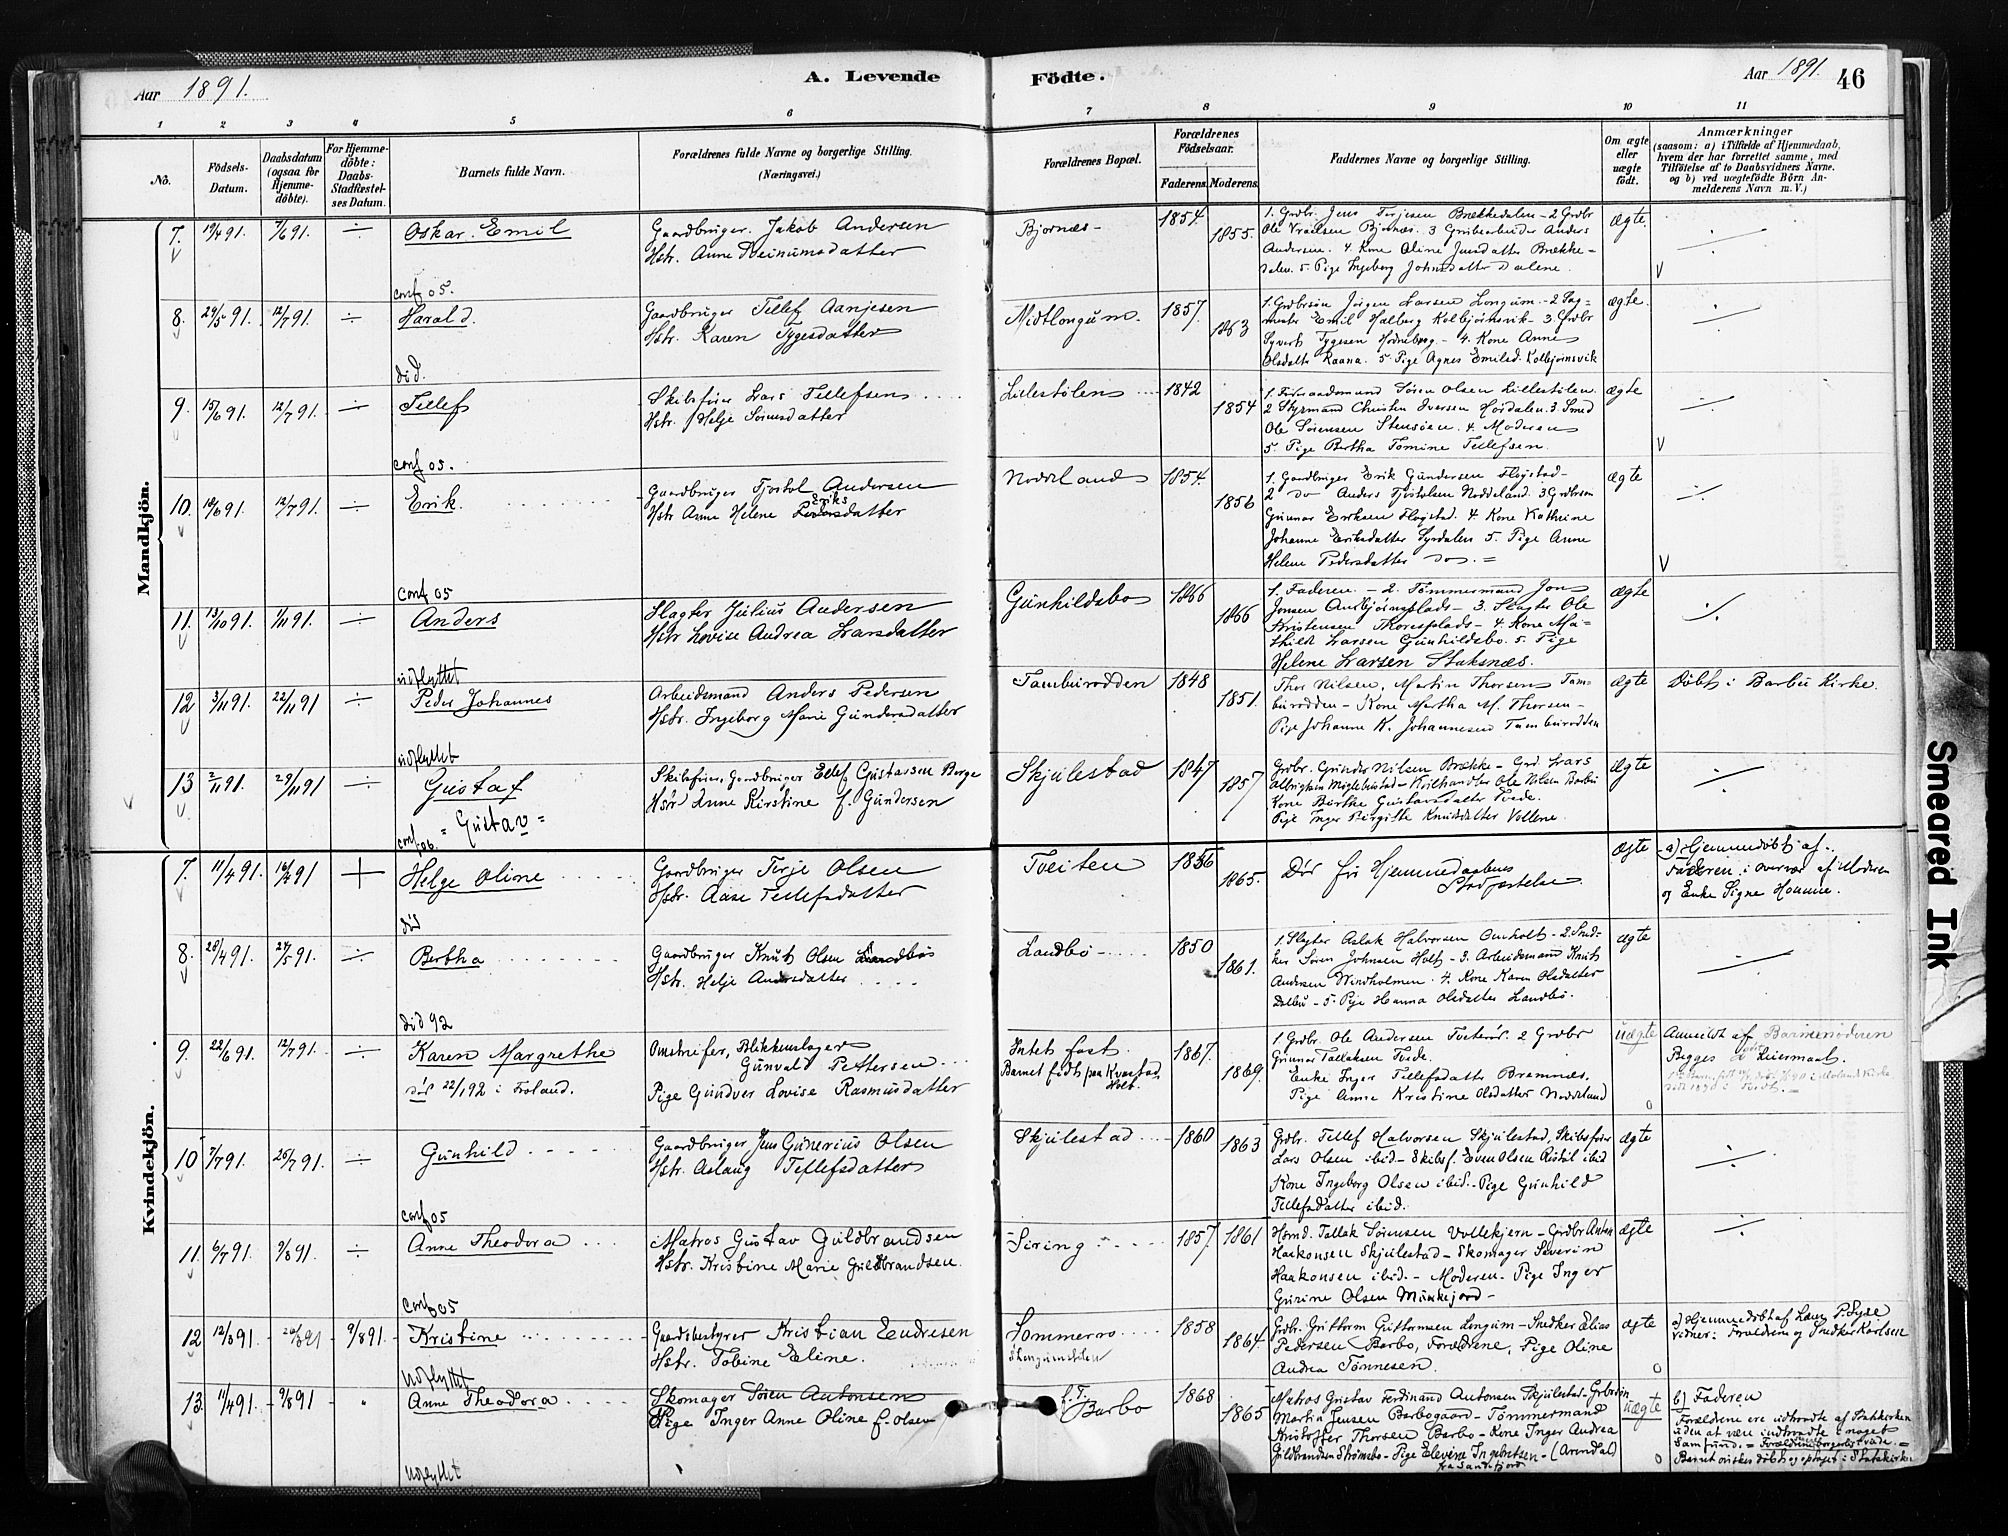 Aar 1891.
A. Levende
Födte.
Aar 1891.
46
1 2 3 4 5 6 7 8 9 10 11
No.
Födsels-Datum.
Daabsdatum (ogsaa for Hjemme-döbte).
For Hjemme-döbte: Daabs-Stadfæstel-ses Datum.
Barnets fulde Navn.
Forældrenes fulde Navne og borgerlige Stilling. (Næringsvei.)
Forældrenes Bopæl.
Forældrenes Födselsaar.
Faderens. Moderens.
Faddernes Navne og borgerlige Stilling.
Om ægte eller uægte födt.
Anmærkninger
(saasom: a) i Tilfælde af Hjemmedaab, hvem der har forrettet samme, med Tilföielse af to Daabsvidners Navne. og b) ved uægtefödte Börn An-melderens Navn m. V.)
Mandkjön.
7. 19/4 91. 7/6 91. Oskar Emil
conf 05.
Gaardbruger Jakob Andersen
Hstr. Anne
Bjornæs 1854. 1855.
1. Grdbr. Jens Terjesen Brækkedalen - 2 Grdbr
Ole Bjornæs. 3 Grubearbeider Anders
Andersen. 4. Kone Oline Jensdatter Brække-
dalen. 5. Pige Ingeborg Johnsdatter Dalene.
ægte
8. 29/5 91. 12/7 91. Harald.
död.
Gaardbruger Tellef Aanjesen
Hstr. Karen Tygesdatter
Midtlongum. 1857. 1863
1. Grdbrsön Jörgen Larsen Longum. - 2
Emil Halberg Kolbjörnsvik - 3. Grdbr
Syvert Tygesen - 4. Kone Anne
Olsdatt. Raana. 5. Pige Agnes Emilsd. Kolbjörnsvik
ægte.
9. 15/6 91. 12/7 91. Tellef
conf 05.
Skibsförer Lars Tellefsen
Hstr. Helje Sörensdatter
Lillestölen 1842 1854
1. Sören Olsen Lillestölen.
2 Styrmand Christen Iversen 3. Smed
Ole Sörensen 4. Moderen
5. Pige Bertha Tomine Tellefsen.
ægte
10. 18/6 91. 12/7 91. Erik.
conf 05
Gaardbruger Tjostol Andersen
Hstr Anne Helene Eriksdatter
Noddeland 1854. 1856
1. Gaardbruger Erik Gundersen Flöystad -
2 do Anders Tjostolsen Noddeland. 3 Grdbrsön
Gunnar Eriksen Flöystad. 4. Kone Kathrine
Johanne Eriksdatter 5. Pige Anne
Helene Pedersdatter
ægte
11. 13/10 91. 1/11 91. Anders
udflyttet
Slagter Julius Andersen
Hstr Lovise Andrea Larsdatter
Gunhildsbo 1866 1866
1. Faderen - 2. Tömmermand Jon
Jonsen - 3. Slagter Ole
Kristensen - 4. Kone Ma-
thilde Larsen Gunhildsbo. 5. Pige
Helene Larsen Staksnæs.
ægte
12 3/11 91. 22/11 91 Peder Johannes
udflyttet
Arbeidsmand Anders Pedersen
Hstr. Ingeborg Marie Gundersdatter
Tamburodden 1848 1851.
Thor Nilsen, Martin Thorsen Tam-
burodden - Kone Martha M. Thorsen -
Pige Johanne K. Johannesen Tamburodden
ægte
Döbt i Barbu Kirke.
13 2/11 91. 29/11 91 Gustaf
= Gustav =
conf 06.
Skibsförer, Gaardbruger Ellef Gustavsen Berge
Hstr Anne Kirstine f. Gundersen
Skjulestad 1847 1857
Grdbr. Gunder Nilsen Brække - Lars
Ole Nilsen Barbu
Kone Birthe Gustavsdatter Tvede.
Pige Inger Birgitte Knudsdatter Vollene.
ægte
Kvindekjön.
7. 11/4 91. 16/4 91 Helge Oline
död
Gaardbruger Terje Olsen
Hstr. Aase Tellefsdatter
Tveiten 1856 1865.
Död för Hjemmedaabens
Stadfæstelse
ægte
a) Hjemmedöbt af
Faderen i overvær af Moderen
og Enke Signe Homme.
8. 28/4 91. 24/5 91. Bertha
död 92
Gaardbruger Knut Olsen Landbö
Hstr. Helje Andersdatter
Landbö 1850 1861.
1. Slagter Aslak Halvorsen Omholt - 2. Sned-
ker Sören Johnsen Holt - 3. Arbeidsmand Knut
Andersen Windholmen. 4. Kone Karen Olsdatter
- 5. Pige Hanna Olsdatter Landbö.
ægte
9. 22/6 91. 12/7 91. Karen Margrethe
död 22/1 92 i Froland.
Omstreifer, Blikkenslager
Gunvald Pettersen
Pige Gundver Lovise Rasmusdatter
Intet fast.
Barnet födt paa Kvastad
Holt.
1867. 1869.
1. Grdbr. Ole Andersen 2 Grdbr
Gunnar Tallaksen Tvede.
Enke Inger Tellefsdatter Bremnes.
Pige Anne Kristine Olsdatter Noddeland
uægte
Anmeldt af Barnemoderen
Begges Leiermaal.
10 7/7 91. 26/7 91. Gunhild
conf 05
Gaardbruger Jens Gunerius Olsen
Hstr. Aslaug Tellefsdatter
Skjulestad 1860 1863
Grdbr. Tellef Halvorsen Skjulestad, Skibsförer
Lars Olsen ibid - Skibsf. Even Olsen ibid
Kone Ingeborg Olsen ibid. - Pige Gunhild
Tellefsdatter ibid.
ægte
11. 6/7 91. 9/8 91. Anne Theodora
conf 05
Matros Gustav Guldbrandsen
Hstr. Kristine Marie Guldbrandsen.
Söring 1857. 1861
Tallak Sörensen Vollekjern - Grdbr Anton
Haakonsen Skjulestad - Skomager Severin
Haakonsen ibid. - Moderen - Pige Inger
Gurine Olsen Munkejord -
ægte
12 12/3 91. 9/8 91. Kristine
Udflyttet
Gaardsbestyrer Kristian Endresen
Hstr. Tobine Eline.
Sommerro 1858 1864.
Grdbr. Guttorm Guttormsen Longum - Snedker Elias
Pedersen Barbo, Forældrene, Pige Oline
Andrea Tönnesen.
ægte
a) Hjemmedöbt af
vidner: Forældrene og Snedker Karlsen
13. 11/4 91. 9/8 91 Anne Theodora
Udflyttet
Skomager Sören Antonsen
Pige Inger Anne Oline f. Olsen
f. T.
Barbo 1868 1865
Matros Gustav Ferdinand Antonsen Skjulestad -
Martin Jensen Barbogaard - Tömmermand
Kristoffer Thorsen Barbo - Kone Inger Andrea
Guldbrandsen Strömsbo - Pige Elevine Ingebretsen - (Arendal)
fra Sandefjord
uægte
b) Faderen
Forældrene ere udtraadte af Statskirken
uden at være indtraadte i noget
Samfund. = Forældrene borgerligt viede. =
Barnet önskes döbt og optaget i Statskirken
Smeared Ink